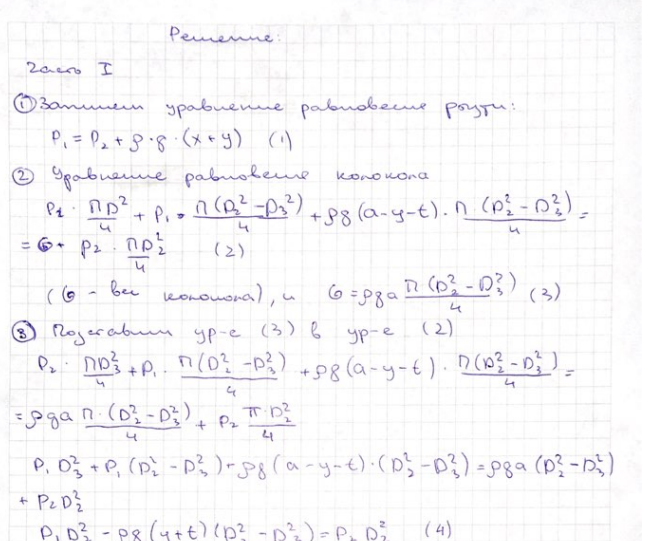 Решение:
Часть I
① Запишем уравнение равновесие ртути:
P₁ = P₂ + ρ·g·(x+y) (1)
② Уравнение равновесие колокола
P₂ · ПD²/4 + P₁ · П(D₂² – D₃²)/4 + ρg(a–y–t) · П·(D₂² – D₃²)/4 =
= G + P₂ · ПD₂²/4 (2)
(G – вес колокола), и G = ρga П(D₂² – D₃²)/4 (3)
③ Подставим ур-е (3) в ур-е (2)
P₂ · ПD₃²/4 + P₁ · П(D₂² – D₃²)/4 + ρg(a–y–t) · П(D₂² – D₃²)/4 =
= ρga П·(D₂² – D₃²)/4 + P₂ π·D₂²/4
P₁ D₃² + P₁(D₂² – D₃²) + ρg(a–y–t)·(D₂² – D₃²) = ρga(D₂² – D₃²)
+ P₂D₂²
P₁D₂² – ρg(y+t)(D₂² – D₃²) = P₂D₂² (4)